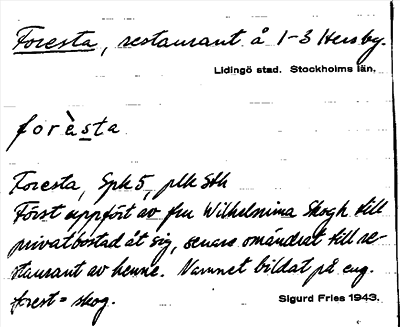 Foresta, restaurant å 1-3 Hersby.
Lidingö stad. Stockholms län.
forèsta
Foresta, Spk 5, plk Sth
Först uppfört av fru Wilhelmina Skogh till
privatbostad åt sig, senare omändrat till re-
staurant av henne. Namnet bildat på eng.
forest = skog.
Sigurd Fries 1943.